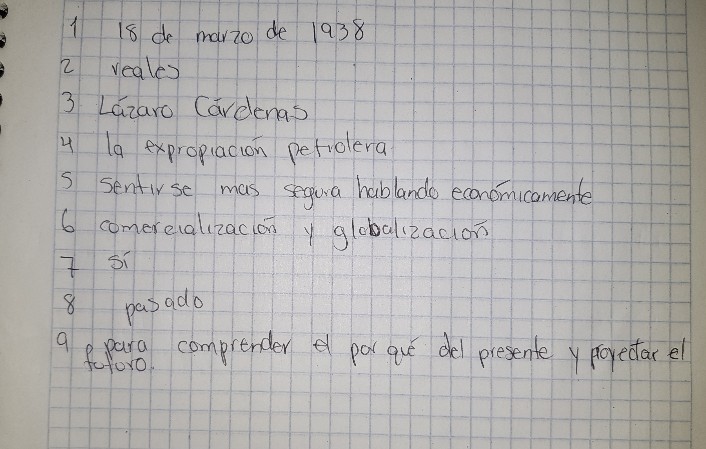 1 18 de marzo de 1938
2 reales
3 Lázaro Cárdenas
4 la expropiación petrolera
5 sentirse mas segura hablando económicamente
6 comercialización y globalización
7 sí
8 pasado
9 para comprender el por qué del presente y proyectar el
futuro.